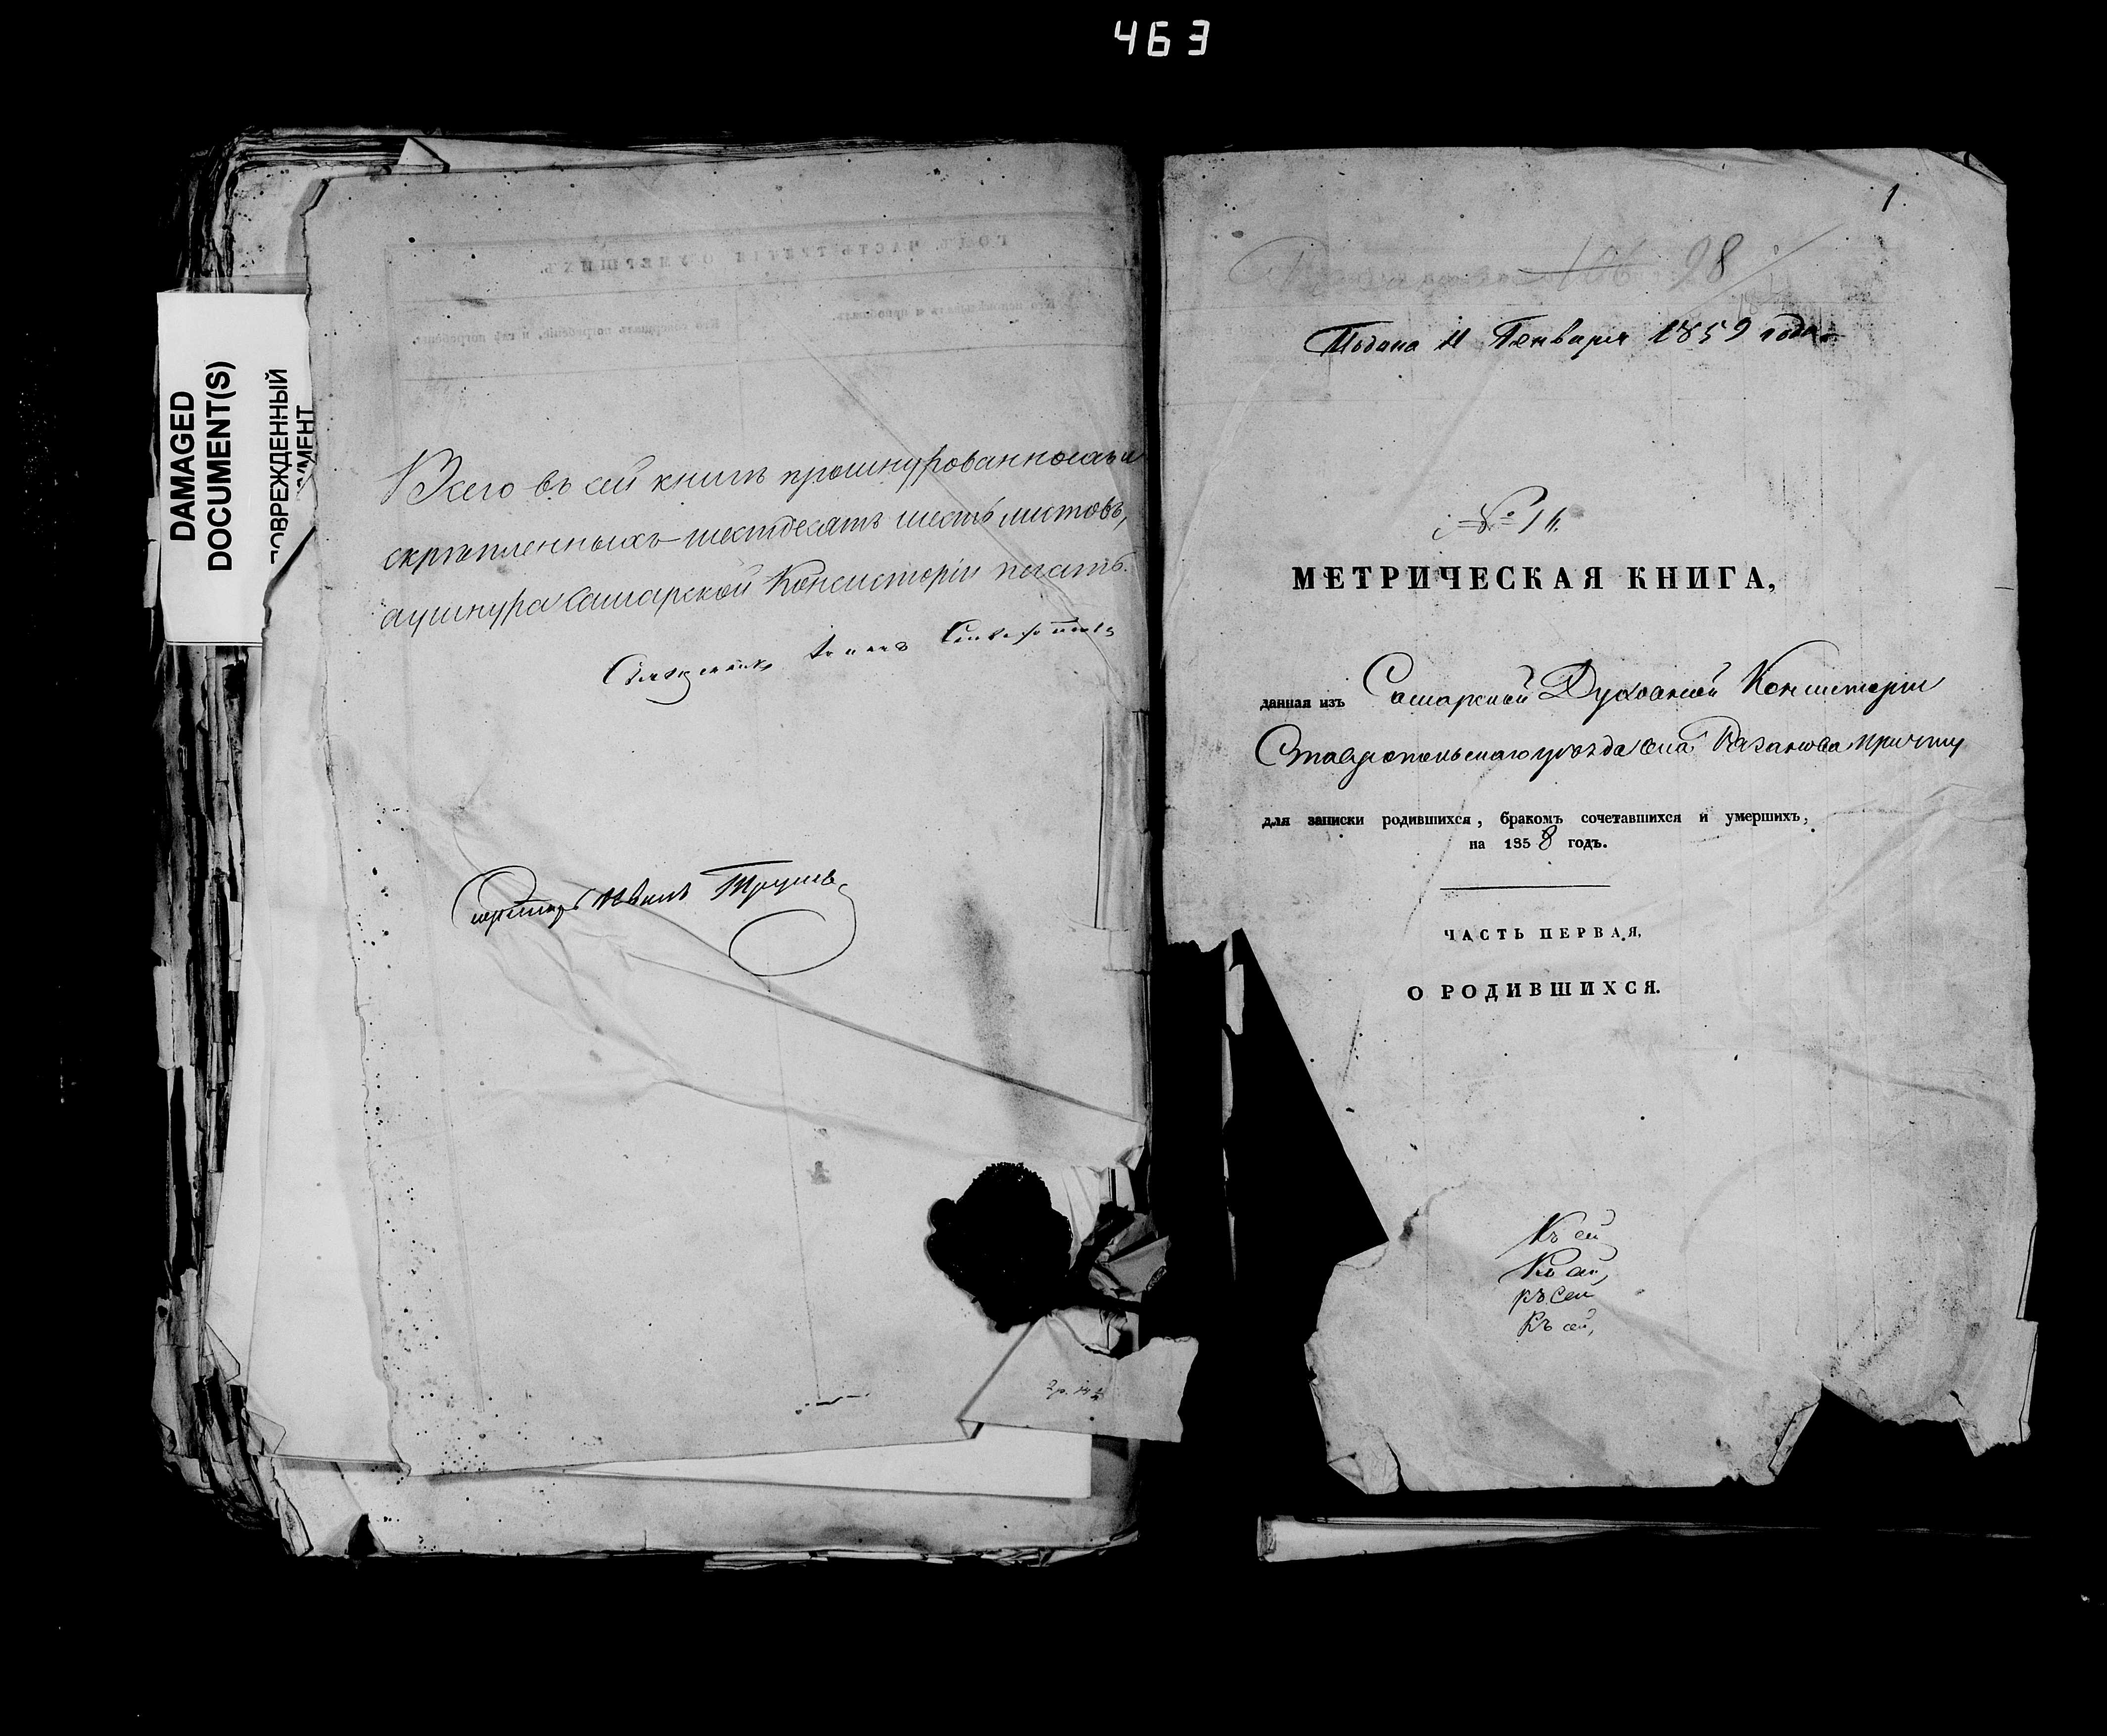 463
DAMAGED
DOCUMENT(S)
ПОВРЕЖДЕННЫЙ
Всего въ сей книгѣ прошнурованныхъ и
скрѣпленныхъ шестдесятъ шесть листовъ,
а у шнура Самарской Консисторіи печать.
Священникъ
Секретарь
1
106 98
Подана 11 Генваря 1859 года.
МЕТРИЧЕСКАЯ КНИГА,
данная изъ Самарской Духовной Консисторіи
Ставропольскаго уѣзда села Рязанова причту
для записки родившихся, бракомъ сочетавшихся и умершихъ,
на 1858 годъ.
ЧАСТЬ ПЕРВАЯ,
О РОДИВШИХСЯ.
Къ сей
Къ сей,
къ сей
Къ сей,